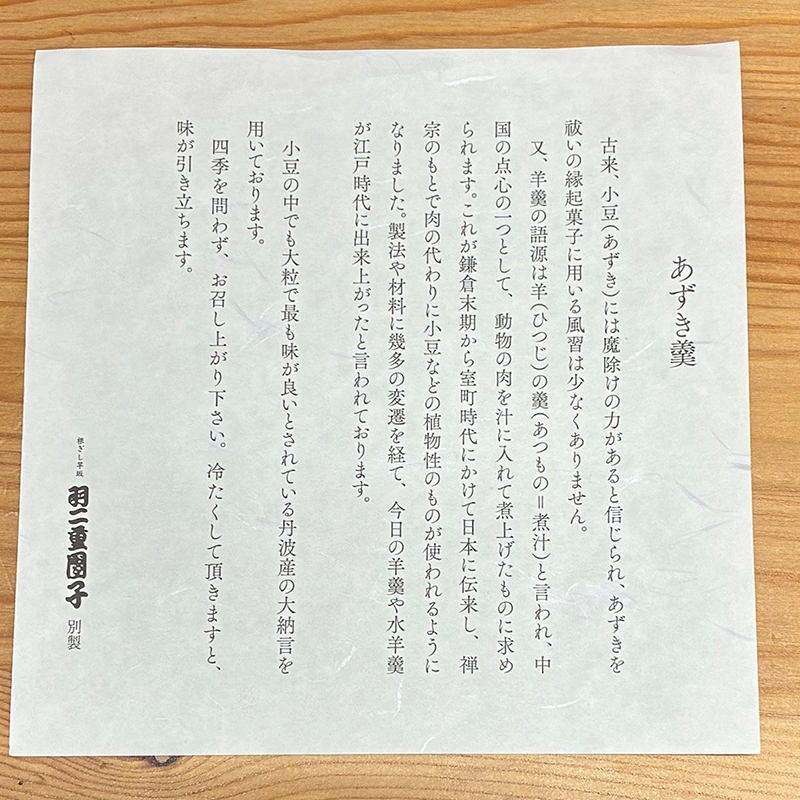 あずき羹
古来、小豆(あずき)には魔除けの力があると信じられ、あずきを
祓いの縁起菓子に用いる風習は少なくありません。
又、羊羹の語源は羊(ひつじ)の羹(あつもの=煮汁)と言われ、中
国の点心の一つとして、動物の肉を汁に入れて煮上げたものに求め
られます。これが鎌倉末期から室町時代にかけて日本に伝来し、禅
宗のもとで肉の代わりに小豆などの植物性のものが使われるように
なりました。製法や材料に幾多の変遷を経て、今日の羊羹や水羊羹
が江戸時代に出来上がったと言われております。
小豆の中でも大粒で最も味が良いとされている丹波産の大納言を
用いております。
四季を問わず、お召し上がり下さい。冷たくして頂きますと、
味が引き立ちます。
根ぎし芋坂
羽二重団子 別製